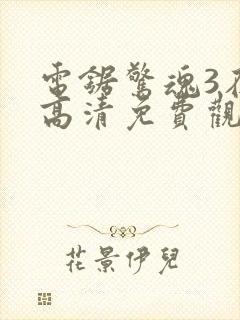 電鋸驚魂3
高清免費觀
花景伊兒